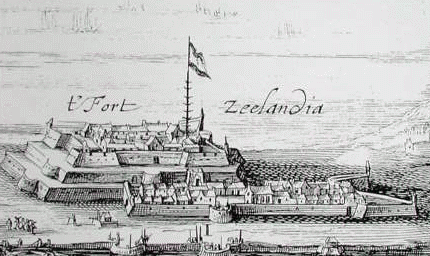 t' Fort Zeelandia